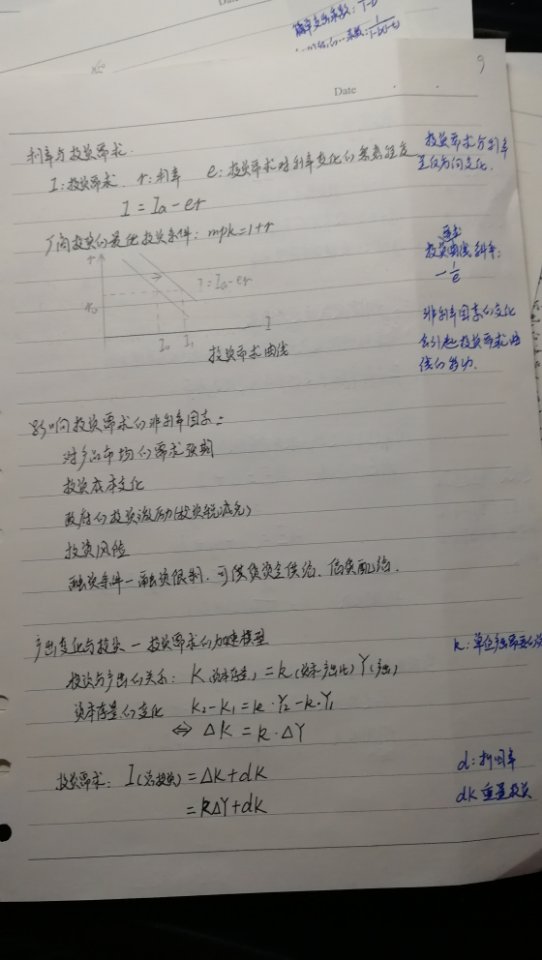 简单支出乘数: 1/(1-b)
乘数: 1/(1-b(1-t))
9
Date
利率与投资需求.
I:投资需求. r:利率 e:投资需求对利率变化的敏感程度
投资需求与利率
呈反方向变化.
I=Ia-er
厂商投资的最优投资条件: mpk=1+r
投资曲线斜率:
-1/e
r
I=Ia-er
r₀
I₀ I₁ I
投资需求曲线
非利率因素的变化
会引起投资需求曲
线的移动.
影响投资需求的非利率因素:
对产品市场的需求预期
投资成本变化
政府的投资激励(投资税减免)
投资风险
融资条件-融资限制. 可供贷资金供给. 信贷配给.
产出变化与投资-投资需求的加速模型
k:单位产出需要的
投资与产出的关系: K(资本存量)=k(资本-产出比)Y(产出)
资本存量的变化 k₂-k₁=k·Y₂-k·Y₁
⇔ ΔK=k·ΔY
投资需求: I(总投资)=ΔK+dK
d:折旧率
=kΔY+dK
dK 重置投资